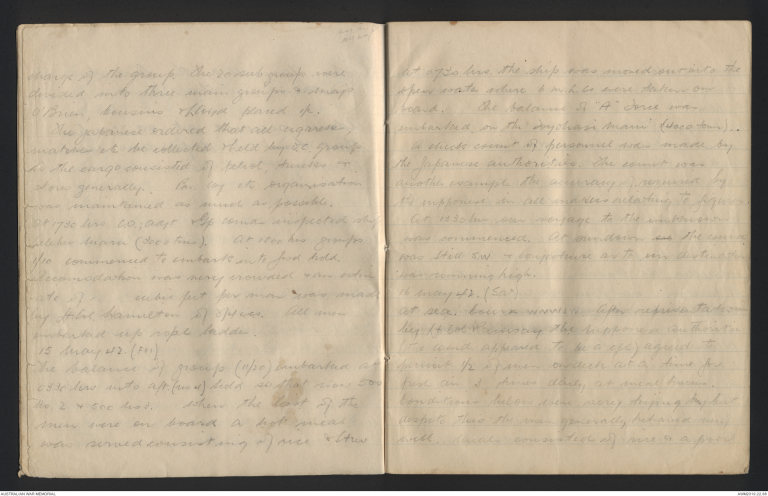 charge of the group. The 20 sub groups were
divided into three main groups & majs
O'Brien, Cousins & Lloyd placed i/c.
The Japanese ordered that all cigarettes,
matches etc be collected & held by i/c groups
as the cargo consisted of petrol,
stores generally. organisation
was maintained as much as possible.
At 1730 hrs C.O., adjt & Gp comdrs inspected ship
Celebes Maru (3000 tons). At 1800 hrs groups
1/10 commenced to embark into fwd hold
accomodation was very crowded & an
ate of cubic feet per man was made
by Hamilton of 2/4 All men
embarked up rope ladder.
15 May 42 (Fri)
The balance of groups (11/20) embarked at
0830 hrs into aft (No 4) hold so that were 500
No. 2 & 500 No 4. When the last of the
men were on board a hot meal
was served consisting of rice & stew
At 0730 hrs the ship was moved out into the
open water where were taken on
board. The balance of "A" Force was
embarked on the "Toyohasi Maru" (4000 tons)..
A check count of personnel was made by
the Japanese authorities. The count was
another example the accuracy required by
the nipponese in all matters relating to figures.
At 1330 hrs our voyage to the unknown
was commenced. At sundown the course
was still S.W. & conjecture as to our destination
was running high.
16 May 42. (Sat)
At sea. After representations
by Lt Col Ramsay the nippon authorities
appeared to be a agreed to
permit 1/2 of men on deck at a time for
fresh air 3 times daily, at meal hours.
Conditions below were very trying but
despite this the men generally behaved very
well. Meals consisted of rice & a poor
AUSTRALIAN WAR MEMORIAL
AWM2019.22.88